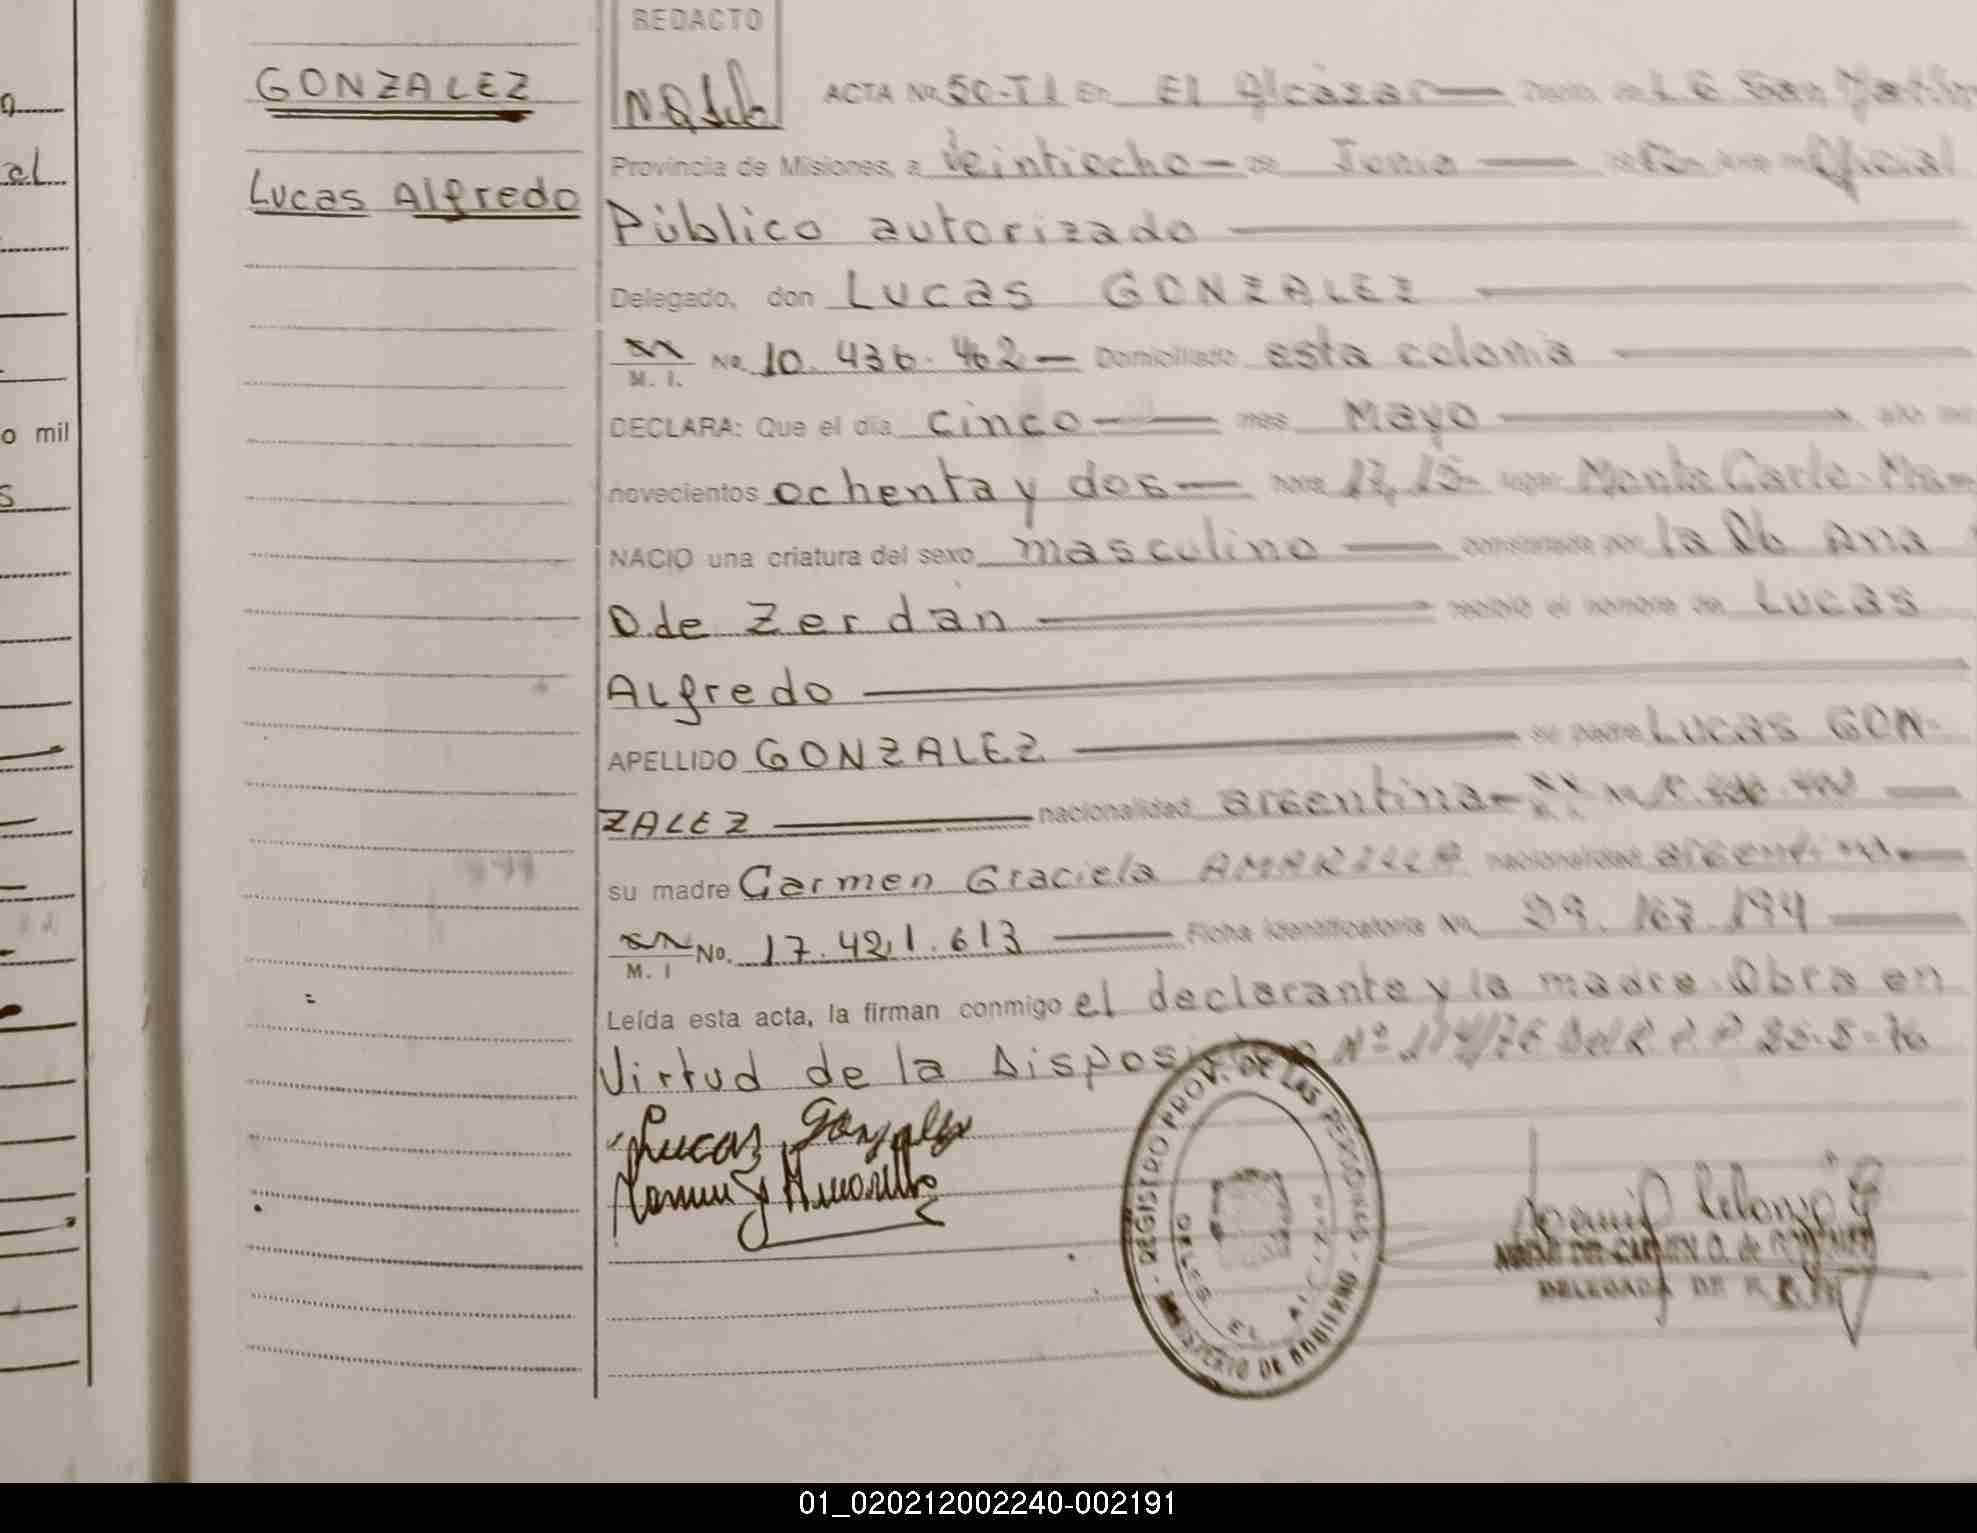 REDACTO
GONZALEZ
Lucas Alfredo
ACTA No. 50-T1 En El Alcázar — L. G. San
Provincia de Misiones, a Veintiocho — de Junio — Oficial
Público autorizado
Delegado, don Lucas GONZALEZ
M. I. No. 10.436.462 — Domiciliado esta colonia
DECLARA: Que el día cinco — mes Mayo
novecientos ochenta y dos — hora 17,15 lugar Monte Carlo
NACIO una criatura del sexo masculino — constatado por la Ob. Ana
O. de Zerdán — recibió el nombre de Lucas
Alfredo
APELLIDO GONZALEZ — su padre Lucas GON-
ZALEZ — nacionalidad argentina
su madre Carmen Graciela AMARILLA nacionalidad argentina
M. I No. 17.421.613 — Ficha Identificatoria No. 167.194
Leída esta acta, la firman conmigo el declarante y la madre. Obra en
Virtud de la Disposición Nº
Lucas Gonzalez
REGISTRO PROV. DE LAS PERSONAS - MINISTERIO DE GOBIERNO
DELEGADA DE
o mil
al
01_020212002240-002191